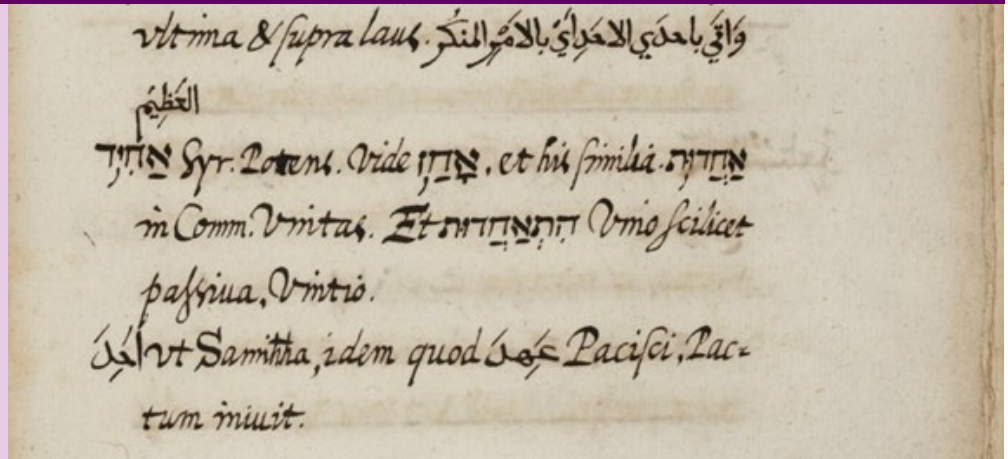 vltima & supra laus. وَاتي باحدَي الاحَدِ اَيْ بالامْر المنكَر
العَظِيم
אַחִיד Syr. Potens. Vide אָחַז, et his similia. אַחֲדוּת
in Comm. Vnitas. Et הִתְאַחֲדוּת Vnio scilicet
passiua, Vnitio.
اَحِدَ vt Samihha, idem quod عَهِدَ Pacisci, Pac-
tum iniuit.